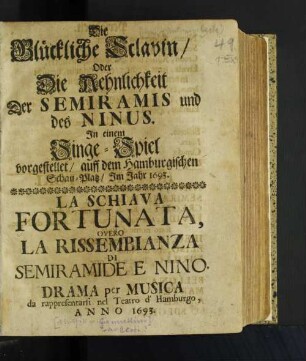 Die
Glückliche Sclavin/
Oder
Die Aehnlichkeit
Der SEMIRAMIS und
des NINUS.
In einem
Singe-Spiel
vorgestellet/ auff dem Hamburgischen
Schau-Platz/ Im Jahr 1693.
LA SCHIAVA
FORTUNATA,
OVERO
LA RISSEMBIANZA
DI
SEMIRAMIDE E NINO.
DRAMA per MUSICA
da rappresentarsi nel Teatro d' Hamburgo,
ANNO 1693.
49